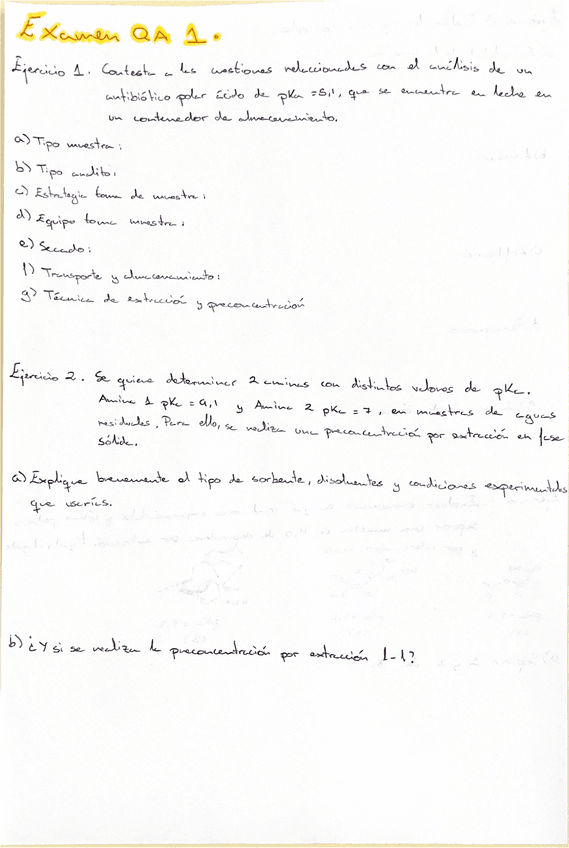 Examen QA 1.
Ejercicio 1. Contesta a las cuestiones relacionadas con el análisis de un
antibiótico polar ácido de pKa = 5,1, que se encuentra en leche en
un contenedor de almacenamiento.
a) Tipo muestra:
b) Tipo analito:
c) Estrategia toma de muestra:
d) Equipo toma muestra:
e) Secado:
f) Transporte y almacenamiento:
g) Técnica de extracción y preconcentración
Ejercicio 2. Se quiere determinar 2 aminas con distintos valores de pKa.
Amina 1 pKa = 9,1 y Amina 2 pKa = 7, en muestras de aguas
residuales. Para ello, se realiza una preconcentración por extracción en fase
sólida.
a) Explique brevemente el tipo de sorbente, disolventes y condiciones experimentales
que usarías.
b) ¿Y si se realiza la preconcentración por extracción l-l?